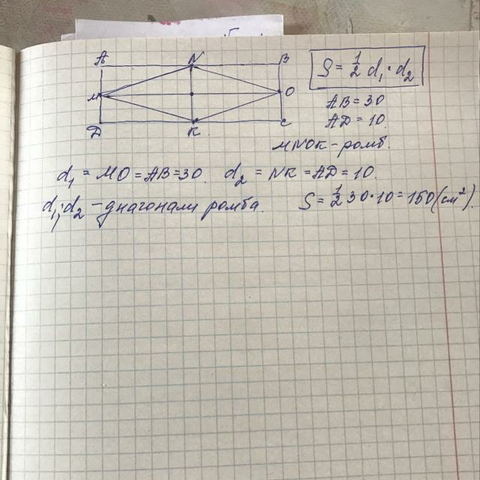 A N B
M O
D K C
S = 1/2 d₁·d₂
AB = 30
AD = 10.
MNOK - ромб.
d₁ = MO = AB = 30. d₂ = NK = AD = 10.
d₁; d₂ - диагонали ромба. S = 1/2 30·10 = 150 (см²).